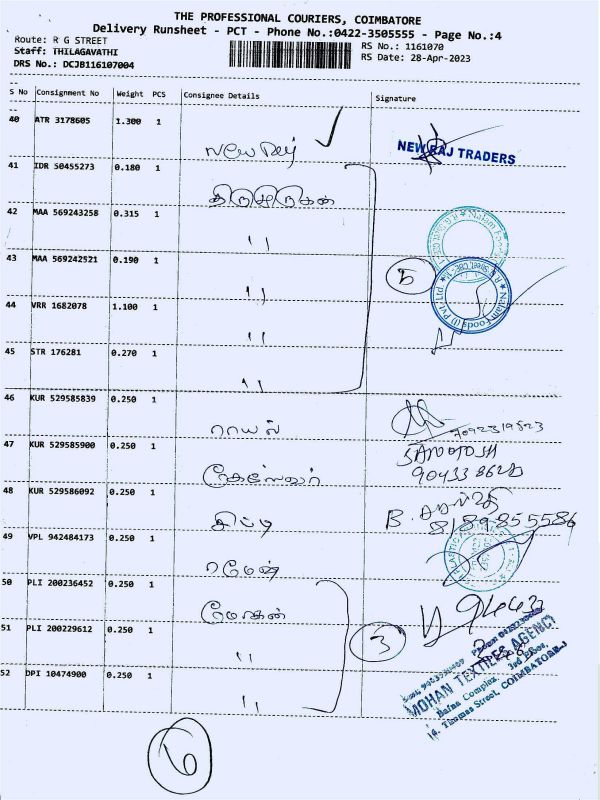 THE PROFESSIONAL COURIERS, COIMBATORE
Delivery Runsheet - PCT - Phone No.:0422-3505555 - Page No.:4
Route: R G STREET
RS No.: 1161070
Staff: THILAGAVATHI
RS Date: 28-Apr-2023
DRS No.: DCJB116107004
S No Consignment No Weight PCS Consignee Details Signature
40 ATR 3178605 1.300 1
NEW RAJ TRADERS
41 IDR 50455273 0.180 1
42 MAA 569243258 0.315 1
43 MAA 569242521 0.190 1
5
44 VRR 1682078 1.100 1
45 STR 176281 0.270 1
46 KUR 529585839 0.250 1
ராயல்
47 KUR 529585900 0.250 1
SANTOSH
48 KUR 529586092 0.250 1
B.
8189855586
49 VPL 942484173 0.250 1
ரமேஷ்
50 PLI 200236452 0.250 1
மோகன்
51 PLI 200229612 0.250 1
3
MOHAN TEXTILES AGENCY
52 DPI 10474900 0.250 1
Complex, 3rd Floor,
Thomas Street, COIMBATORE
6